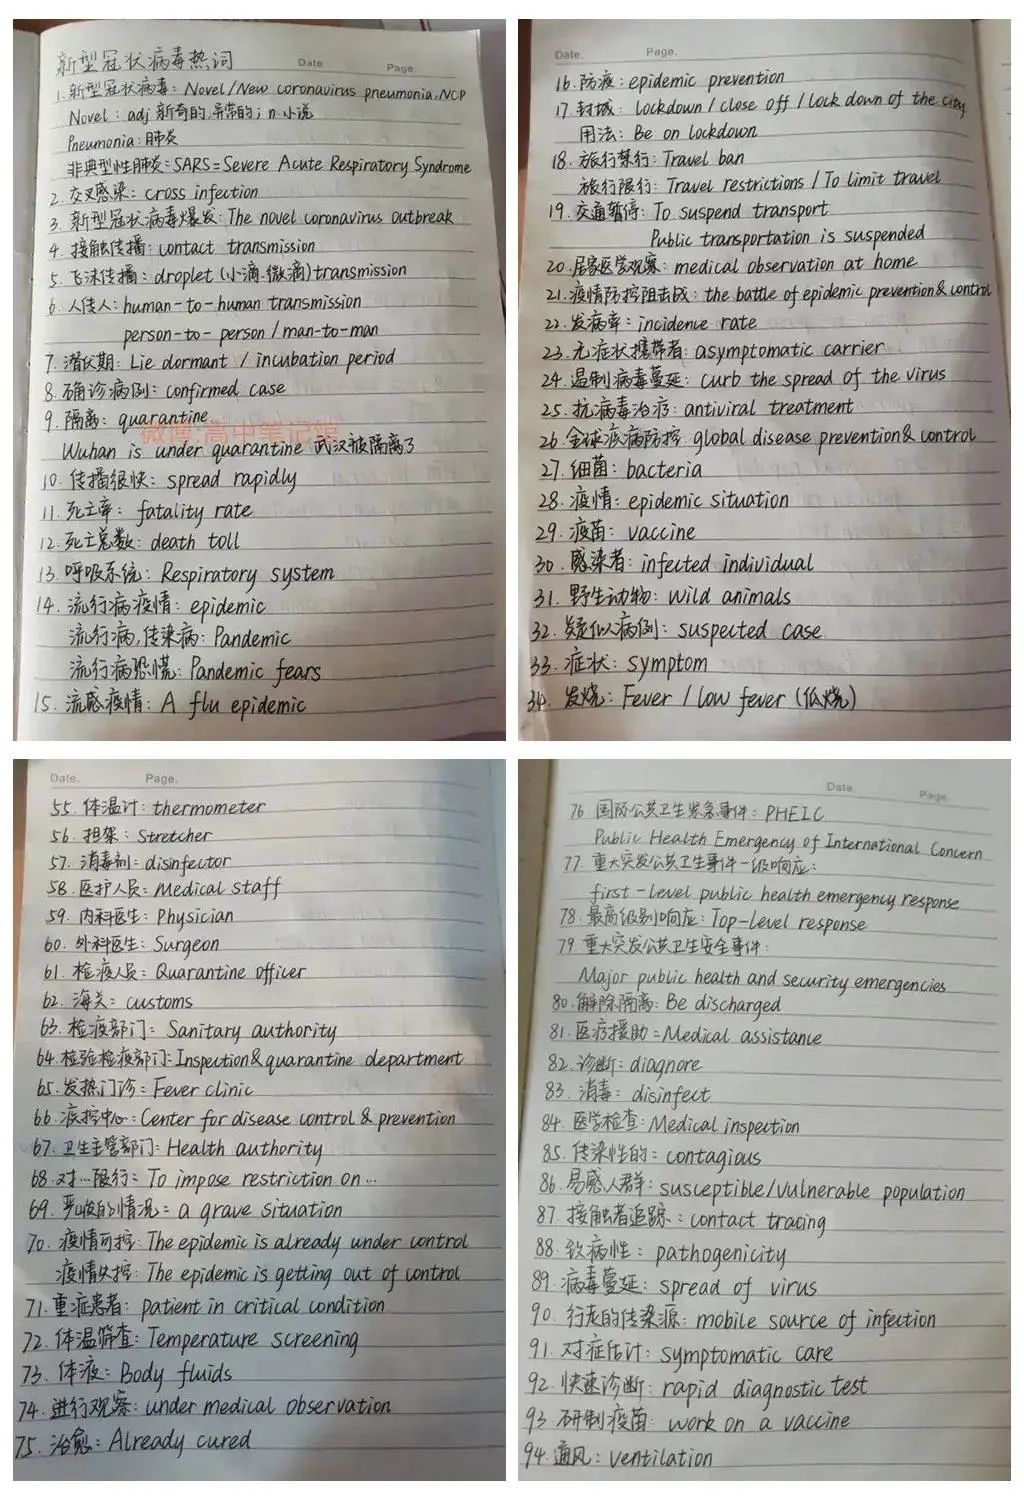 新型冠状病毒热词
Date Page
1.新型冠状病毒: Novel/New coronavirus pneumonia,NCP
Novel: adj 新奇的,异常的; n.小说
Pneumonia:肺炎
非典型性肺炎:SARS=Severe Acute Respiratory Syndrome
2.交叉感染: cross infection
3.新型冠状病毒爆发:The novel coronavirus outbreak
4.接触传播: contact transmission
5.飞沫传播: droplet (小滴.微滴)transmission
6.人传人: human-to-human transmission
person-to-person / man-to-man
7.潜伏期: Lie dormant / incubation period
8.确诊病例: confirmed case
9.隔离: quarantine
微博:高中笔记馆
Wuhan is under quarantine 武汉被隔离了
10.传播很快: spread rapidly
11.死亡率: fatality rate
12.死亡总数: death toll
13.呼吸系统: Respiratory system
14.流行病疫情: epidemic
流行病,传染病: Pandemic
流行病恐慌: Pandemic fears
15.流感疫情: A flu epidemic
Date. Page.
16.防疫: epidemic prevention
17.封城: lockdown / close off / lock down of the city
用法: Be on lockdown
18.旅行禁行: Travel ban
旅行限行: Travel restrictions / To limit travel
19.交通暂停: To suspend transport
Public transportation is suspended
20.居家医学观察: medical observation at home
21.疫情防控阻击战: the battle of epidemic prevention & control
22.发病率: incidence rate
23.无症状携带者: asymptomatic carrier
24.遏制病毒蔓延: curb the spread of the virus
25.抗病毒治疗: antiviral treatment
26.全球疾病防控: global disease prevention & control
27.细菌: bacteria
28.疫情: epidemic situation
29.疫苗: vaccine
30.感染者: infected individual
31.野生动物: wild animals
32.疑似病例: suspected case
33.症状: symptom
34.发烧: Fever / low fever (低烧)
Date. Page.
55.体温计: thermometer
56.担架: Stretcher
57.消毒剂: disinfector
58.医护人员: Medical staff
59.内科医生: Physician
60.外科医生: Surgeon
61.检疫人员: Quarantine officer
62.海关: customs
63.检疫部门: Sanitary authority
64.检验检疫部门: Inspection & quarantine department
65.发热门诊: Fever clinic
66.疾控中心: Center for disease control & prevention
67.卫生主管部门: Health authority
68.对…限行: To impose restriction on …
69.严峻的情况: a grave situation
70.疫情可控: The epidemic is already under control
疫情失控: The epidemic is getting out of control
71.重症患者: patient in critical condition
72.体温筛查: Temperature screening
73.体液: Body fluids
74.进行观察: under medical observation
75.治愈: Already cured
Date. Page.
76 国际公共卫生紧急事件: PHEIC
Public Health Emergency of International Concern
77.重大突发公共卫生事件一级响应:
first-level public health emergency response
78.最高级别响应: Top-level response
79.重大突发公共卫生安全事件:
Major public health and security emergencies
80.解除隔离: Be discharged
81.医疗援助=Medical assistance
82.诊断: diagnore
83.消毒: disinfect
84.医学检查: Medical inspection
85.传染性的: contagious
86.易感人群: susceptible/vulnerable population
87.接触者追踪: contact tracing
88.致病性: pathogenicity
89.病毒蔓延: spread of virus
90.行走的传染源: mobile source of infection
91.对症治疗: symptomatic care
92.快速诊断: rapid diagnostic test
93.研制疫苗: work on a vaccine
94.通风: ventilation